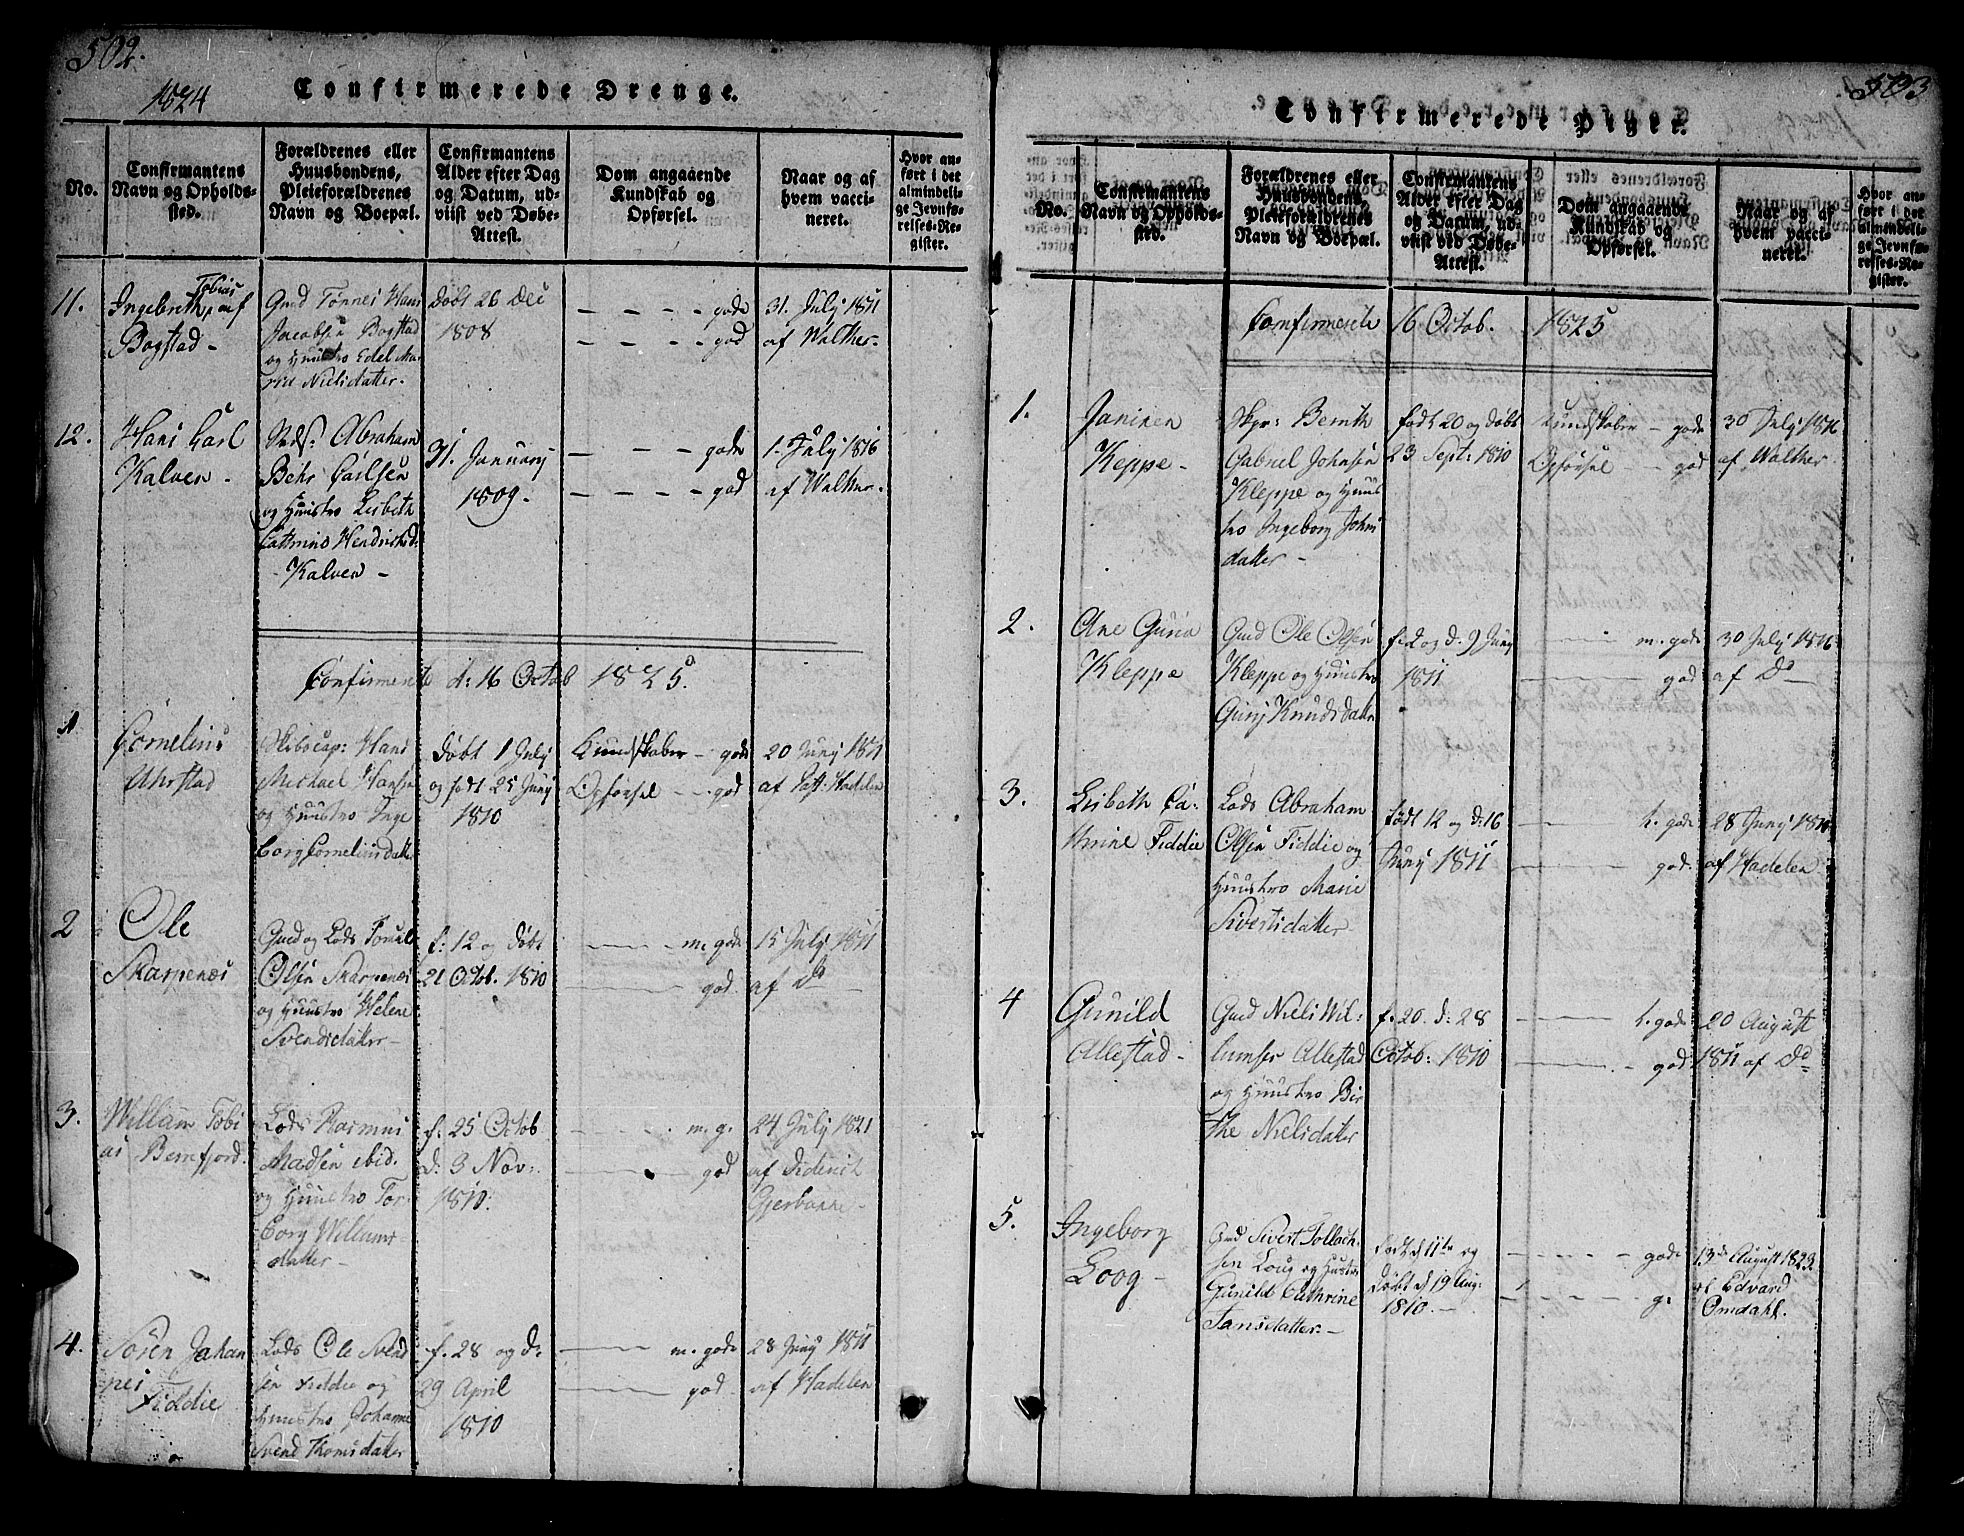 502.
1824
Confirmerede Drenge.
No.
Confirmantens
Navn og Opholds-
sted.
Forældrenes eller
Huusbondens,
Pleieforældrenes
Navn og Boepæl.
Confirmantens
Alder efter Dag
og Datum, ud-
viist ved Døbe-
Attest.
Dom angaaende
Kundskab og
Opførsel.
Naar og af
hvem vacci-
neret.
Hvor an-
ført i det
almindeli-
ge Jevnfø-
relses-Re-
gister.
11.
Tobias
Ingebreth, af
Bogstad -
Gmd Tønnes Hans
Jacobsen Bogstad
og Huustro Edel Ma-
rie Nielsdatter.
Døbt 26 Dec
1808
- - - - gode
- - - - god
31. July 1811
af Walther.
12.
Hans Carl
Kalven -
Abraham
Behr Carlsen
og Huustro Lisbeth
Cathrine Hendrichsd:
- Kalven -
31. January
1809 -
- - - - gode
- - - - god
1. July 1816
af Walther.
Confirmerte d: 16 Octob 1825.
1
Cornelius
Ahrstad
Skibscap: Hans
Michael Hansen
og Huustro Inge
borg Cornelius datter
Døbt 1 July
og født 25 Juny
1810
Kundskaber - gode
Opførsel - - god
20 Juny 1811
af Hadelen
2
Ole
Skarpenæs
Gmd og Lods Tomas
Olsen Skarpenæs
og Huustro Helene
Svendsdatter -
f: 12 og døbt
21 Octob. 1810
m. gode
god.
15 July 1811
af Do
3.
Willam Tobi
as Bernfjord.
Lods Rasmus
Madsen ibid.
og Huustro Tor
borg Willums
datter -
f. 25 Octob
d: 3 Nov:
1810.
m. g.
god
24 July 1821
af Diderich
4.
Sören Johan
nes
Fiddie
Lods Ole Svend
sen Fiddie og
Huustro Johanne
Svend Thomsdatter
f. 28 og d:
29 April
1810
m. gode
god -
28 Juny 1811
af Hadelen
503
Confirmerede Piger.
No.
Confirmantens
Navn og Opholds-
sted.
Forældrenes eller
Huusbondens,
Pleieforældrenes
Navn og Boepæl.
Confirmantens
Alder efter Dag
og Datum, ud-
viist ved Døbe-
Attest.
Dom angaaende
Kundskab og
Opførsel.
Naar og af
hvem vacci-
neret.
Hvor an-
ført i det
almindeli-
ge Jevnfø-
relses-Re-
gister.
Confirmerte 16 Octob. 1825
1.
Janiken
Keppe -
Skpr: Bernth
Gabriel Johnsen
Kleppe og Huus
tro Ingeborg Johns
datter -
født 20 og døbt
23 Sept: 1810
Kundskaber - gode
Opførsel - god
30 July 1816
af Walther
2.
Ane Guria
Kleppe
Gmd Ole Olsen
Kleppe og Huustro
Gurj Knudsdatter
f. 2 og d. 9 Juny
1811
m. gode
god
30 July 1816
af Do
3.
Lisbeth Ca-
thrine Fiddie
Lods Abraham
Olsen Fiddie og
Huustro Marie
Sivertsdatter
født 12 og d: 16
Juny 1811
t. gode
god.
28 Juny 1811
af Hadelen
4
Gunild
Allestad -
Gmd Niels Wil-
lumsen Allestad
og Huustro Bir
the Nielsdatter
f. 20. d: 28
Octob: 1810
t. gode
god
20 August
1811 af Do
5.
Ingeborg
Loog -
Gmd Sivert Tollach-
sen Loug og Hustro
Gunild Cathrine
Jansdatter. -
født d 11te og
Døbt d 19 Aug:
1810. -
- - - - gode
g.
13de August 1823.
af Edvard
Omdahl.